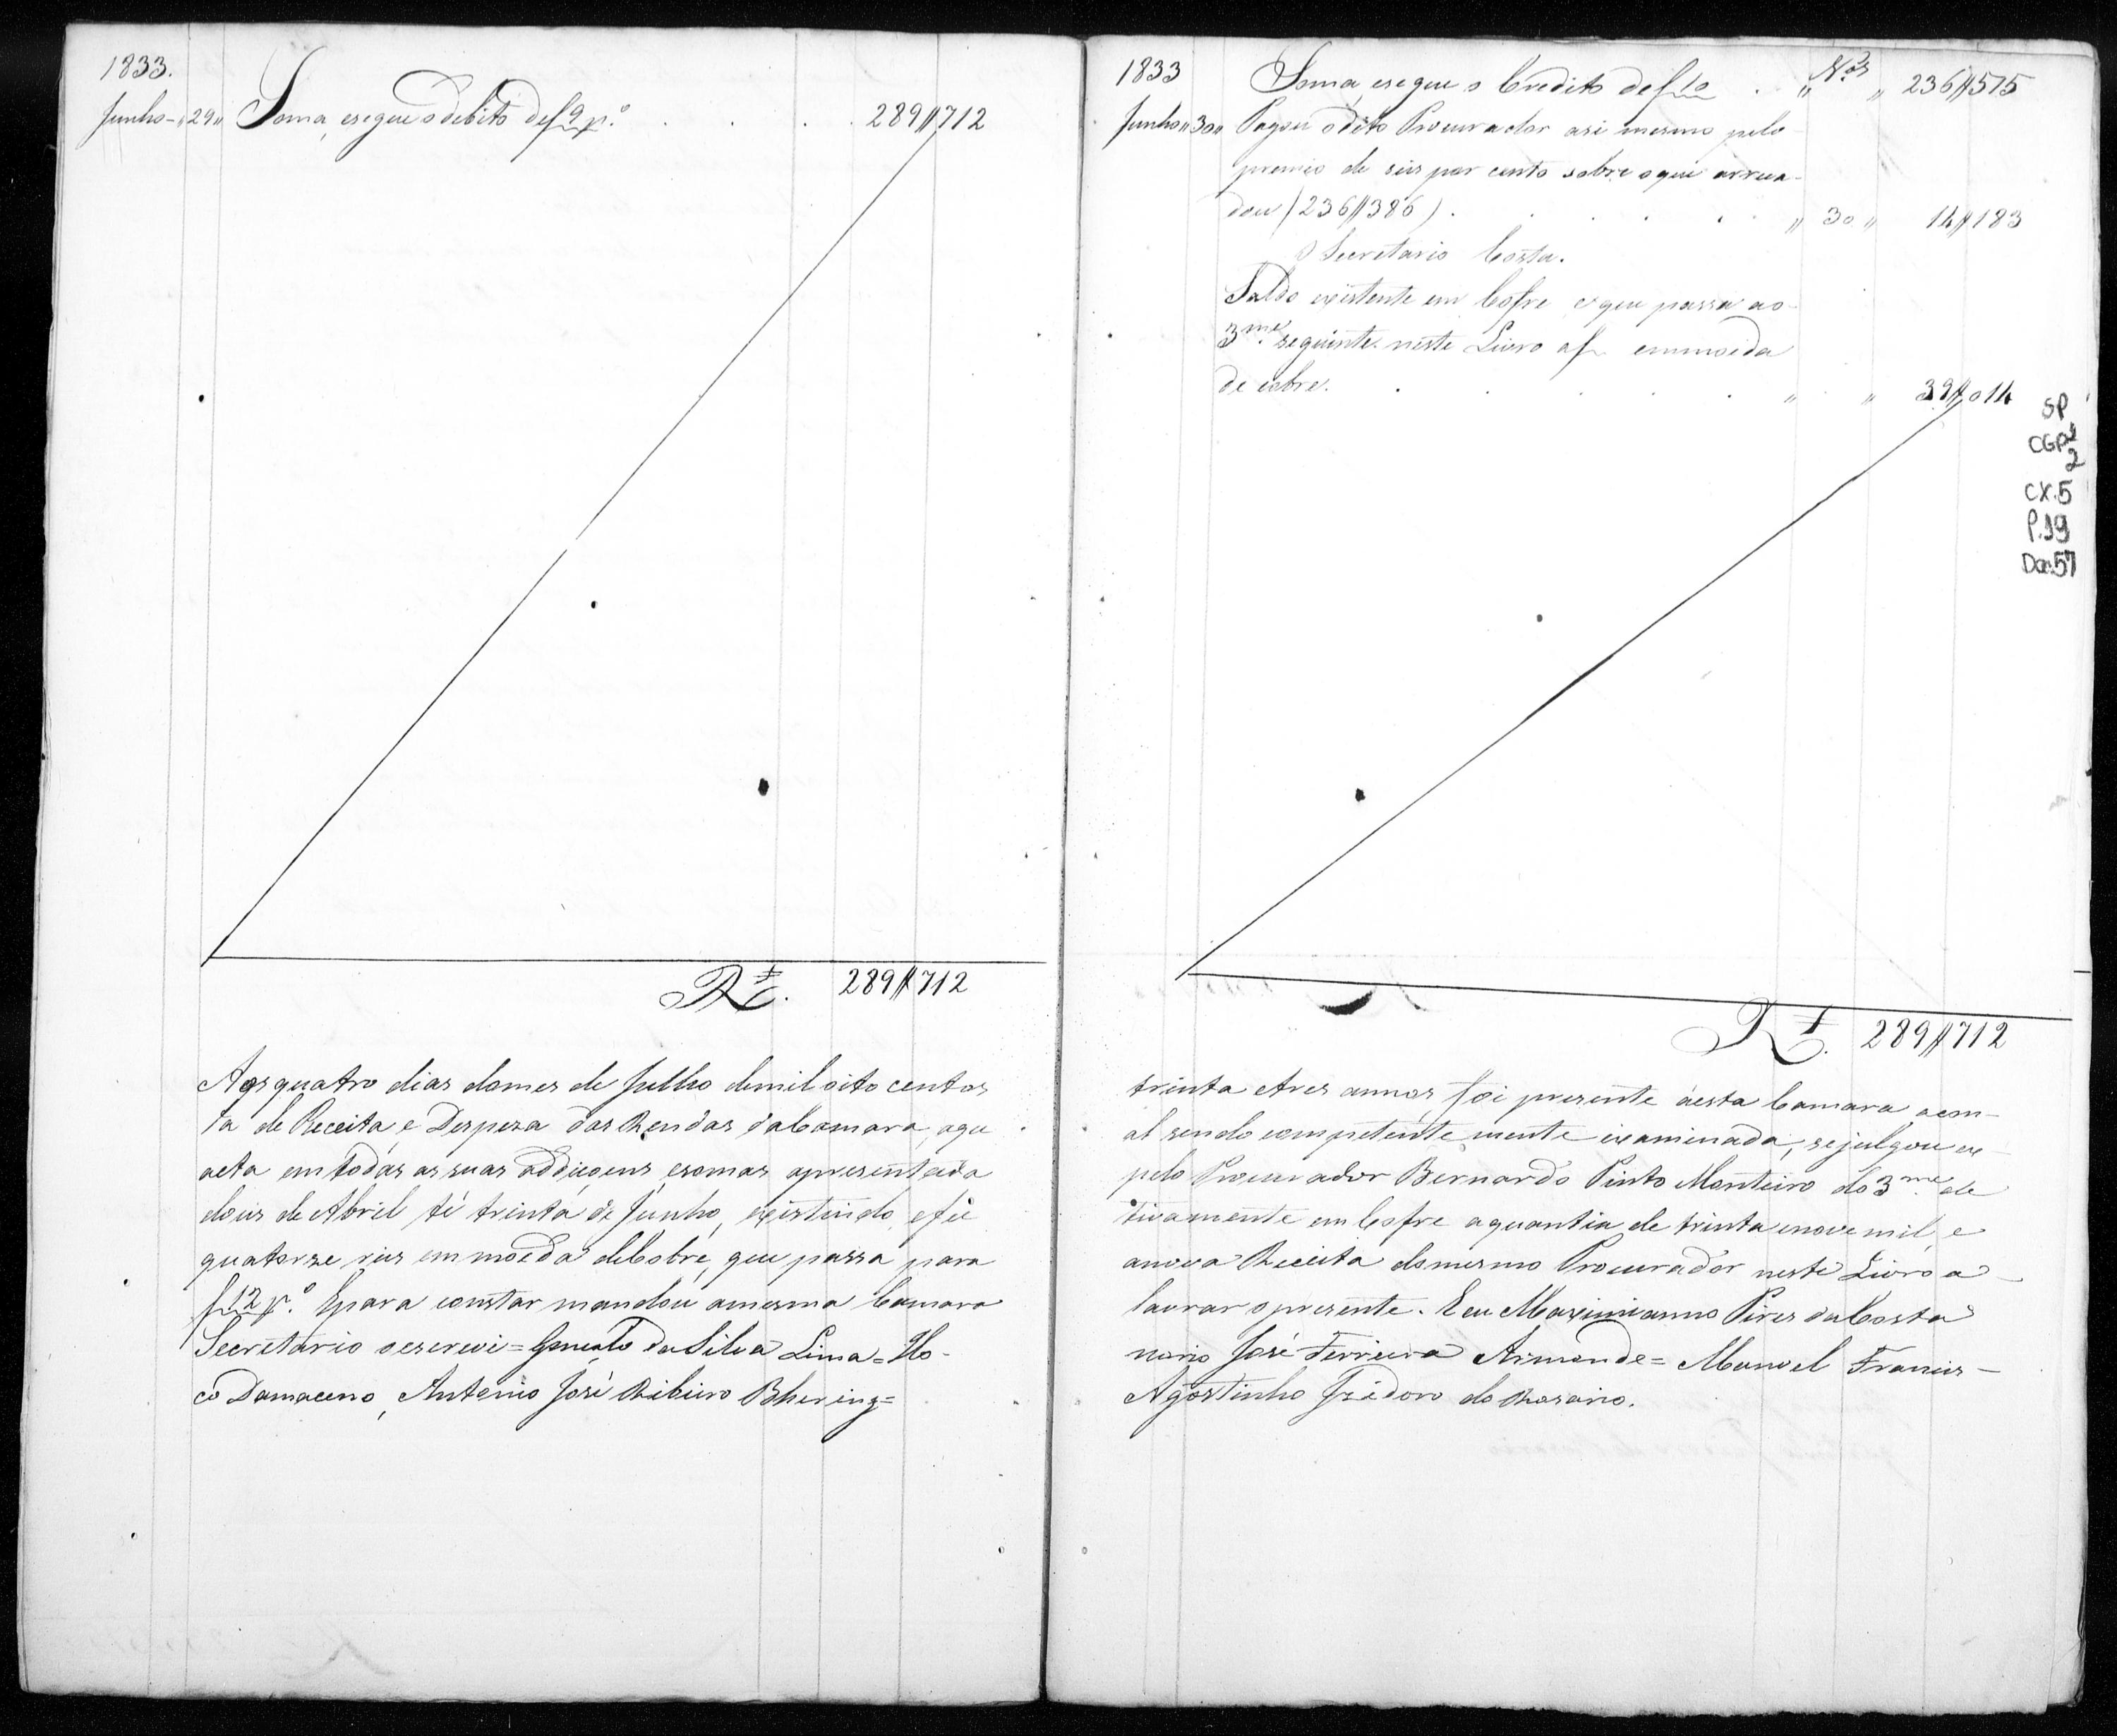 1833.
Junho - „29„ Soma, esegue o debito de f 9 p.º . . . . 289$712
Rs. 289$712
Aos quatro dias do mes de Julho de mil oito centos
ta de Receita, e Despeza das Rendas da Camara, aqu
acta em todas as suas addiçoens, esomas apresentada
dois de Abril té trinta de Junho, existindo efec
quatorze reis em moeda de Cobre, que passa para
f 12 p.º Epara constar mandou amesma Camara
Secretario o escrevi = Goncalo da Silva Lima = Ho-
co Damaceno, Antonio José Ribeiro Bhering =
1833 Soma, esegue o Credito de f 10 . „ N.os „ 236$575
Junho „30„ Pagou o dito Procurador asi mesmo pelo
premio de seis por cento sobre oque arreca-
dou (236$386) . . . . . „ 30 „ 14$183
O Secretario Costa.
Saldo existente em Cofre eque passa ao
3.me seguinte neste Livro af emmoeda
de cobre. . . . . „ „ 39$014
SP
CGP1
2
CX.5
P.19
Doc.57
Rs. 289$712
trinta etres annos foi presente áesta Camara acon-
al sendo competente mente examinada, sejulgou ex-
pelo Procurador Bernardo Pinto Monteiro do 3.me de
tivamente em Cofre aquantia de trinta enove mil, e
anova Receita domesmo Procurador neste Livro a
lavrar o presente. E eu Maximianno Pires da Costa
norio José Ferreira Armonde = Manoel Francis-
Agostinho Izidoro do Rosario.